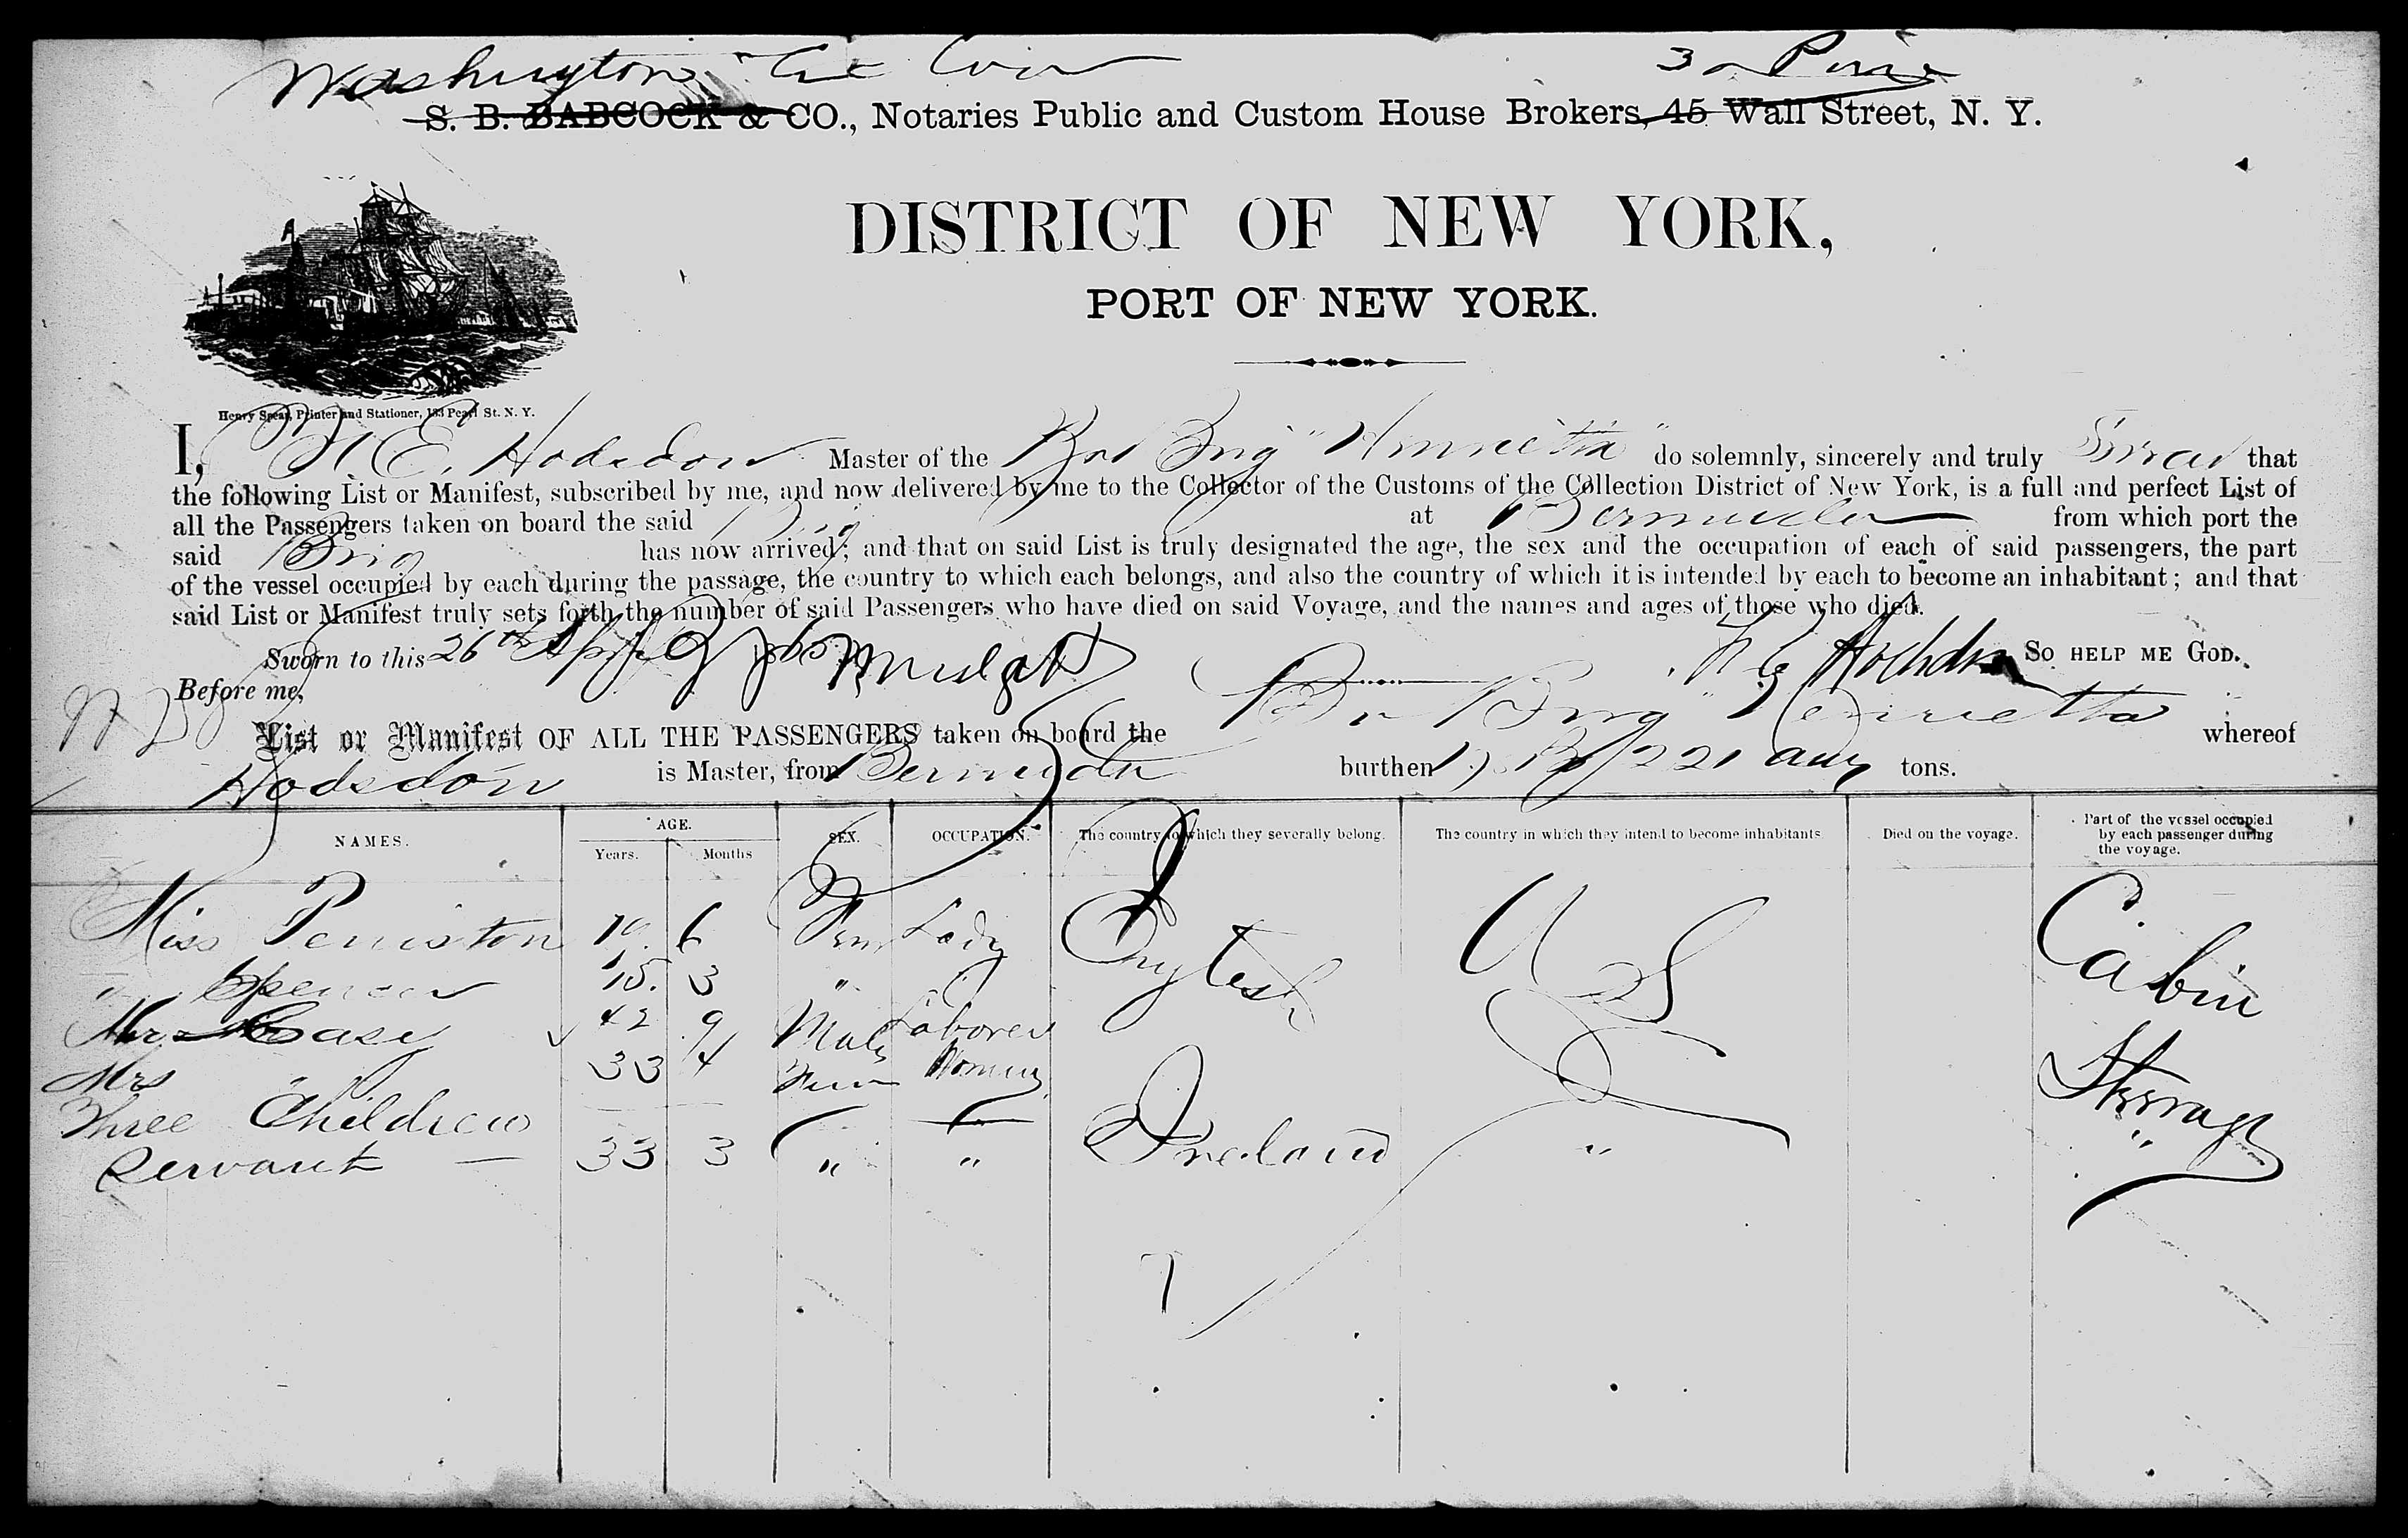 Washington
S. B. BABCOCK & CO., Notaries Public and Custom House Brokers, 45 Wall Street, N. Y.
DISTRICT OF NEW YORK,
PORT OF NEW YORK.
Henry Spear, Printer and Stationer, 133 Pearl St. N. Y.
I, E. Hodsdon Master of the Brig "Henrietta" do solemnly, sincerely and truly Swear that
the following List or Manifest, subscribed by me, and now delivered by me to the Collector of the Customs of the Collection District of New York, is a full and perfect List of
all the Passengers taken on board the said Brig at Bermuda from which port the
said Brig has now arrived; and that on said List is truly designated the age, the sex and the occupation of each of said passengers, the part
of the vessel occupied by each during the passage, the country to which each belongs, and also the country of which it is intended by each to become an inhabitant; and that
said List or Manifest truly sets forth the number of said Passengers who have died on said Voyage, and the names and ages of those who died.
Sworn to this 26th Hodsdon SO HELP ME GOD.
Before me,
List or Manifest OF ALL THE PASSENGERS taken on board the Br Brig "Henrietta whereof
Hodsdon is Master, from Bermuda burthen 221 tons.
NAMES. AGE. Years. Months SEX. OCCUPATION. The country to which they severally belong. The country in which they intend to become inhabitants Died on the voyage. Part of the vessel occupied by each passenger during the voyage.
Miss Peniston 19. 6 Fem Lady English U S Cabin
" Spencer 15. 3 "
Mr Casey 42 9 Male Laborer
Mrs " 33 4 Fem Steerage
Three Children
Servant — 33 3 " " Ireland " "
7